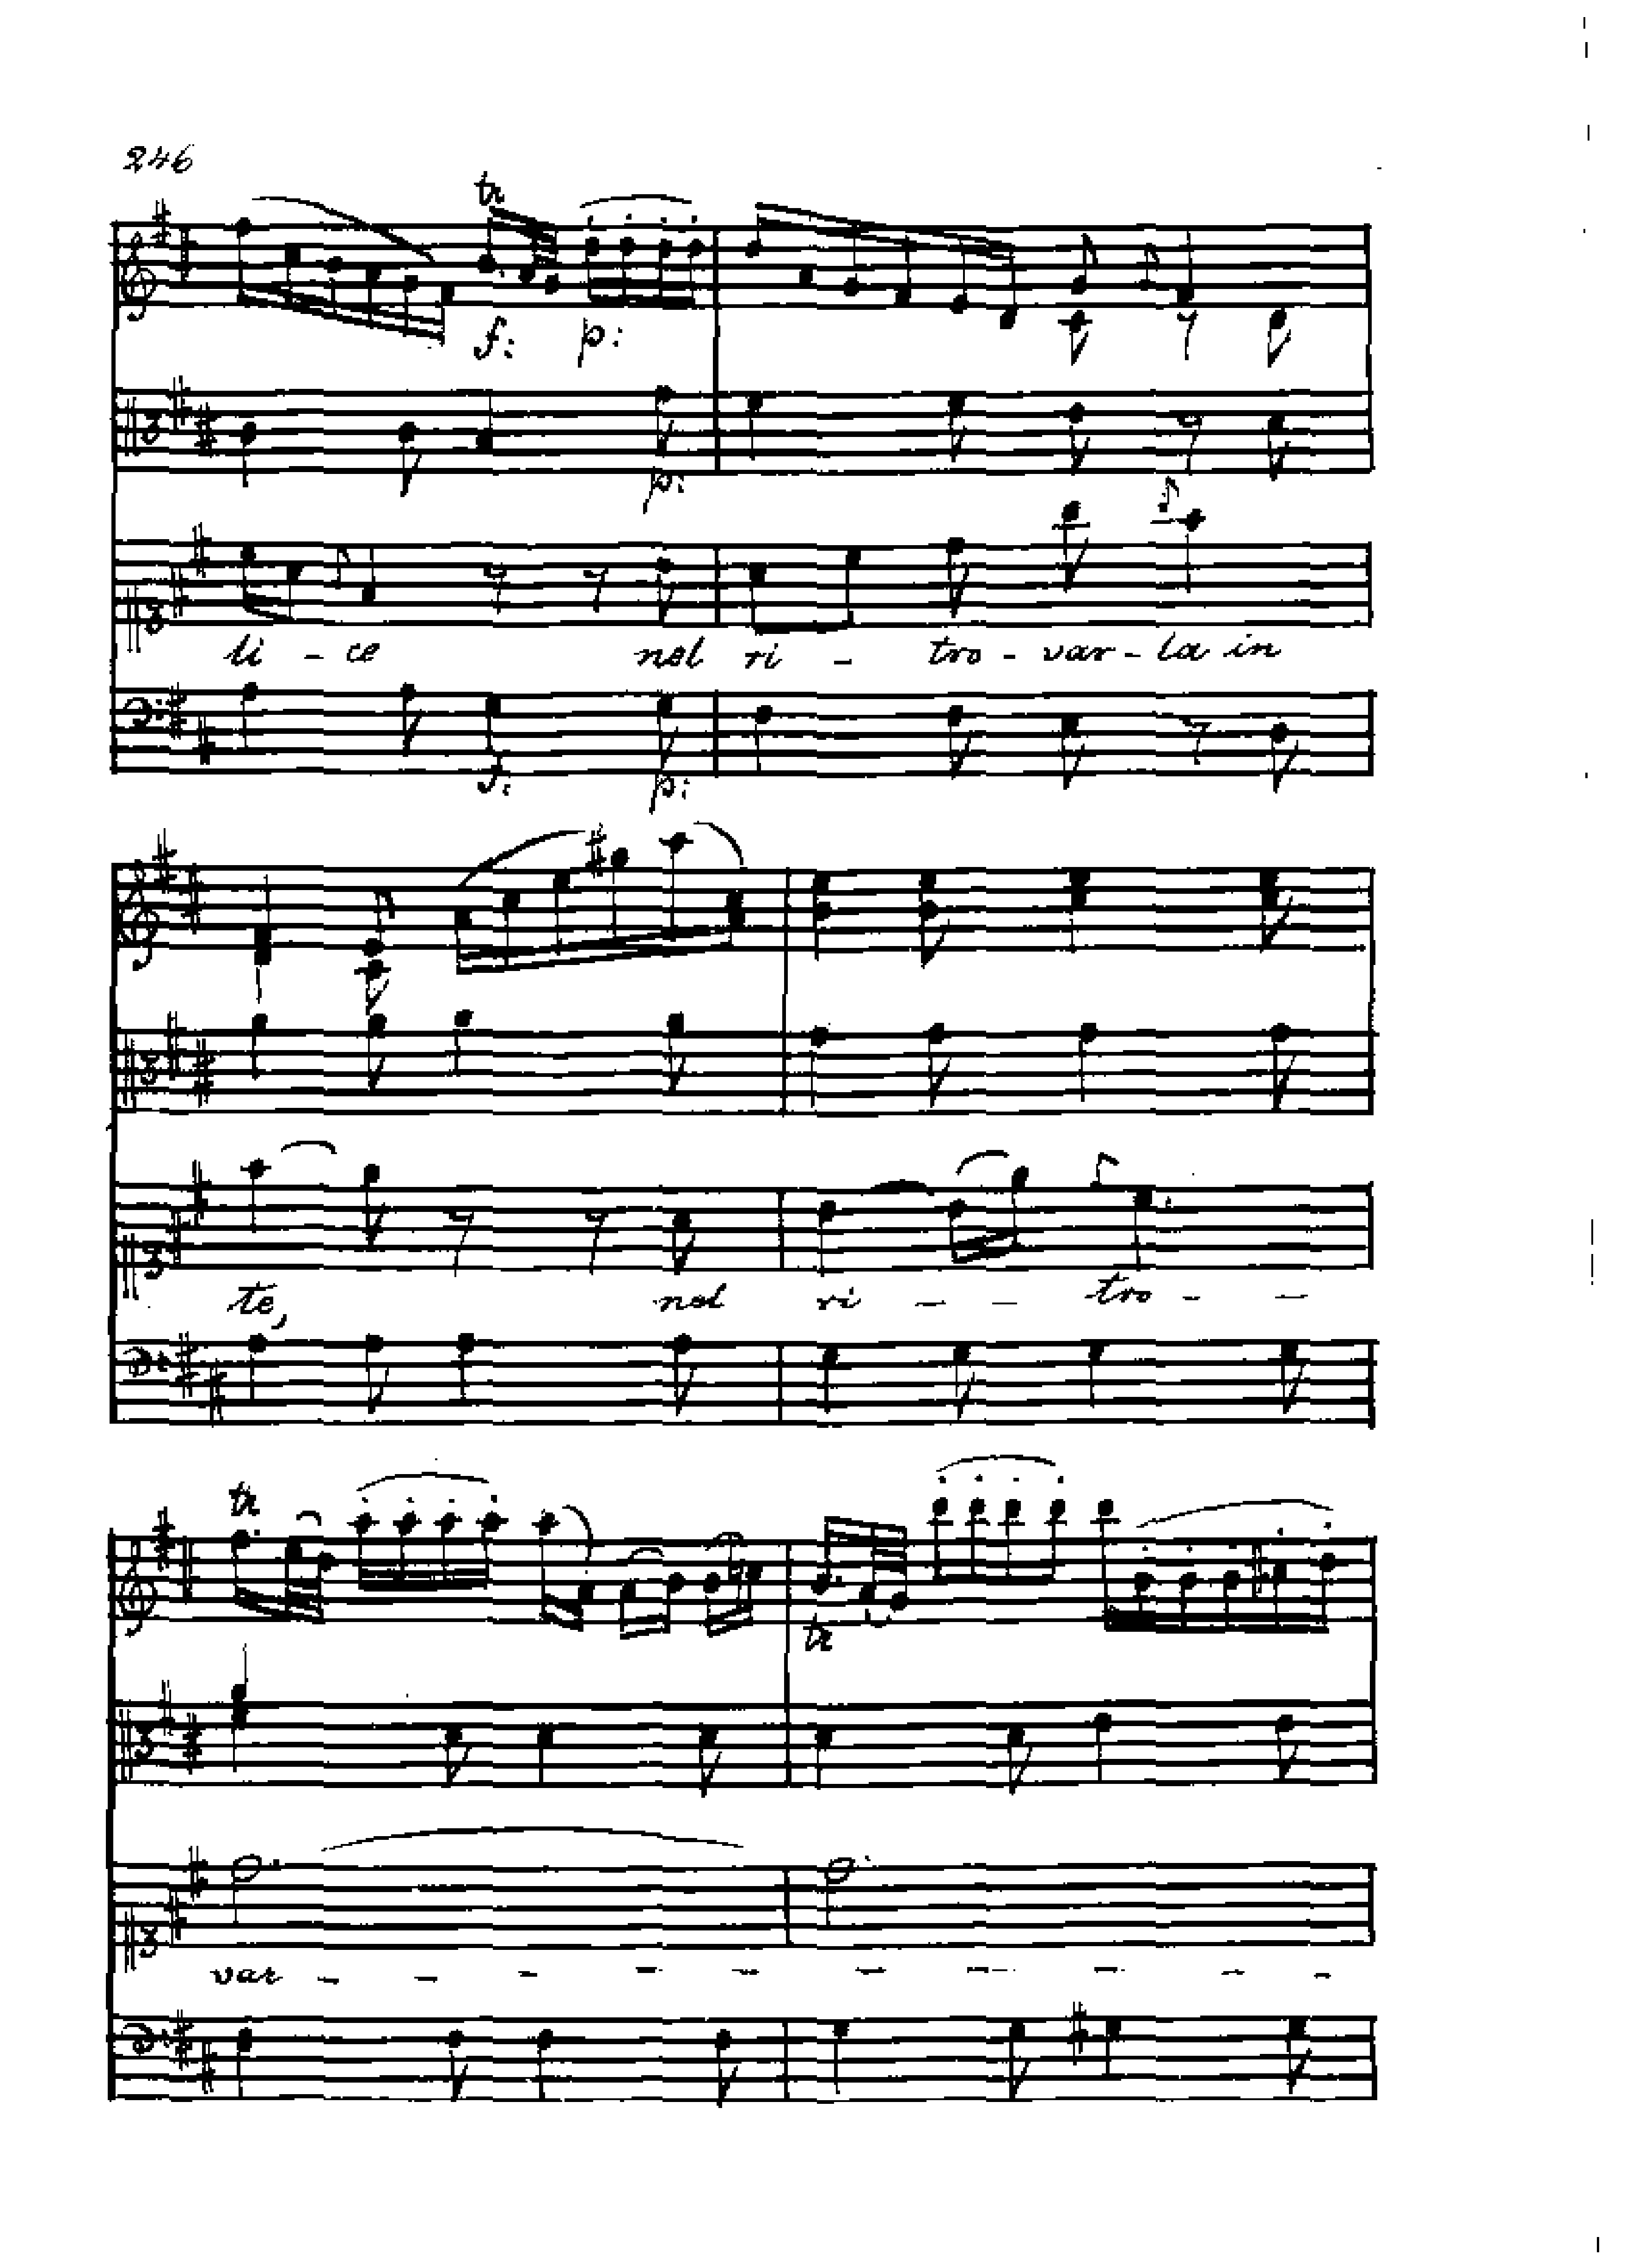 246
tr
f: p:
p:
li - ce nel ri - tro - var - la in
f: p:
te, nel ri - - tro - -
tr
tr
var - - - - - - - - - -